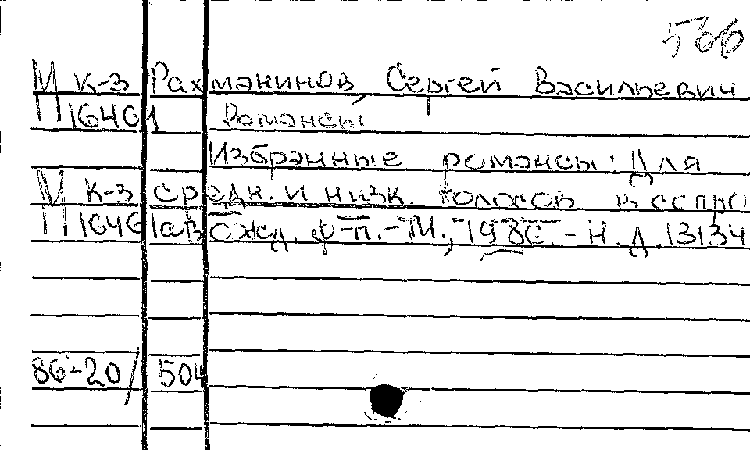 566
М к-3 Рахманинов, Сергей Васильевич
П 16401 Романсы
Избранные романсы: Для
М к-3 средн. и низк. голосов в сопро
П 16401ав ожд. ф-п. - М., 1980. - Н. Д. 13134
86-20/504